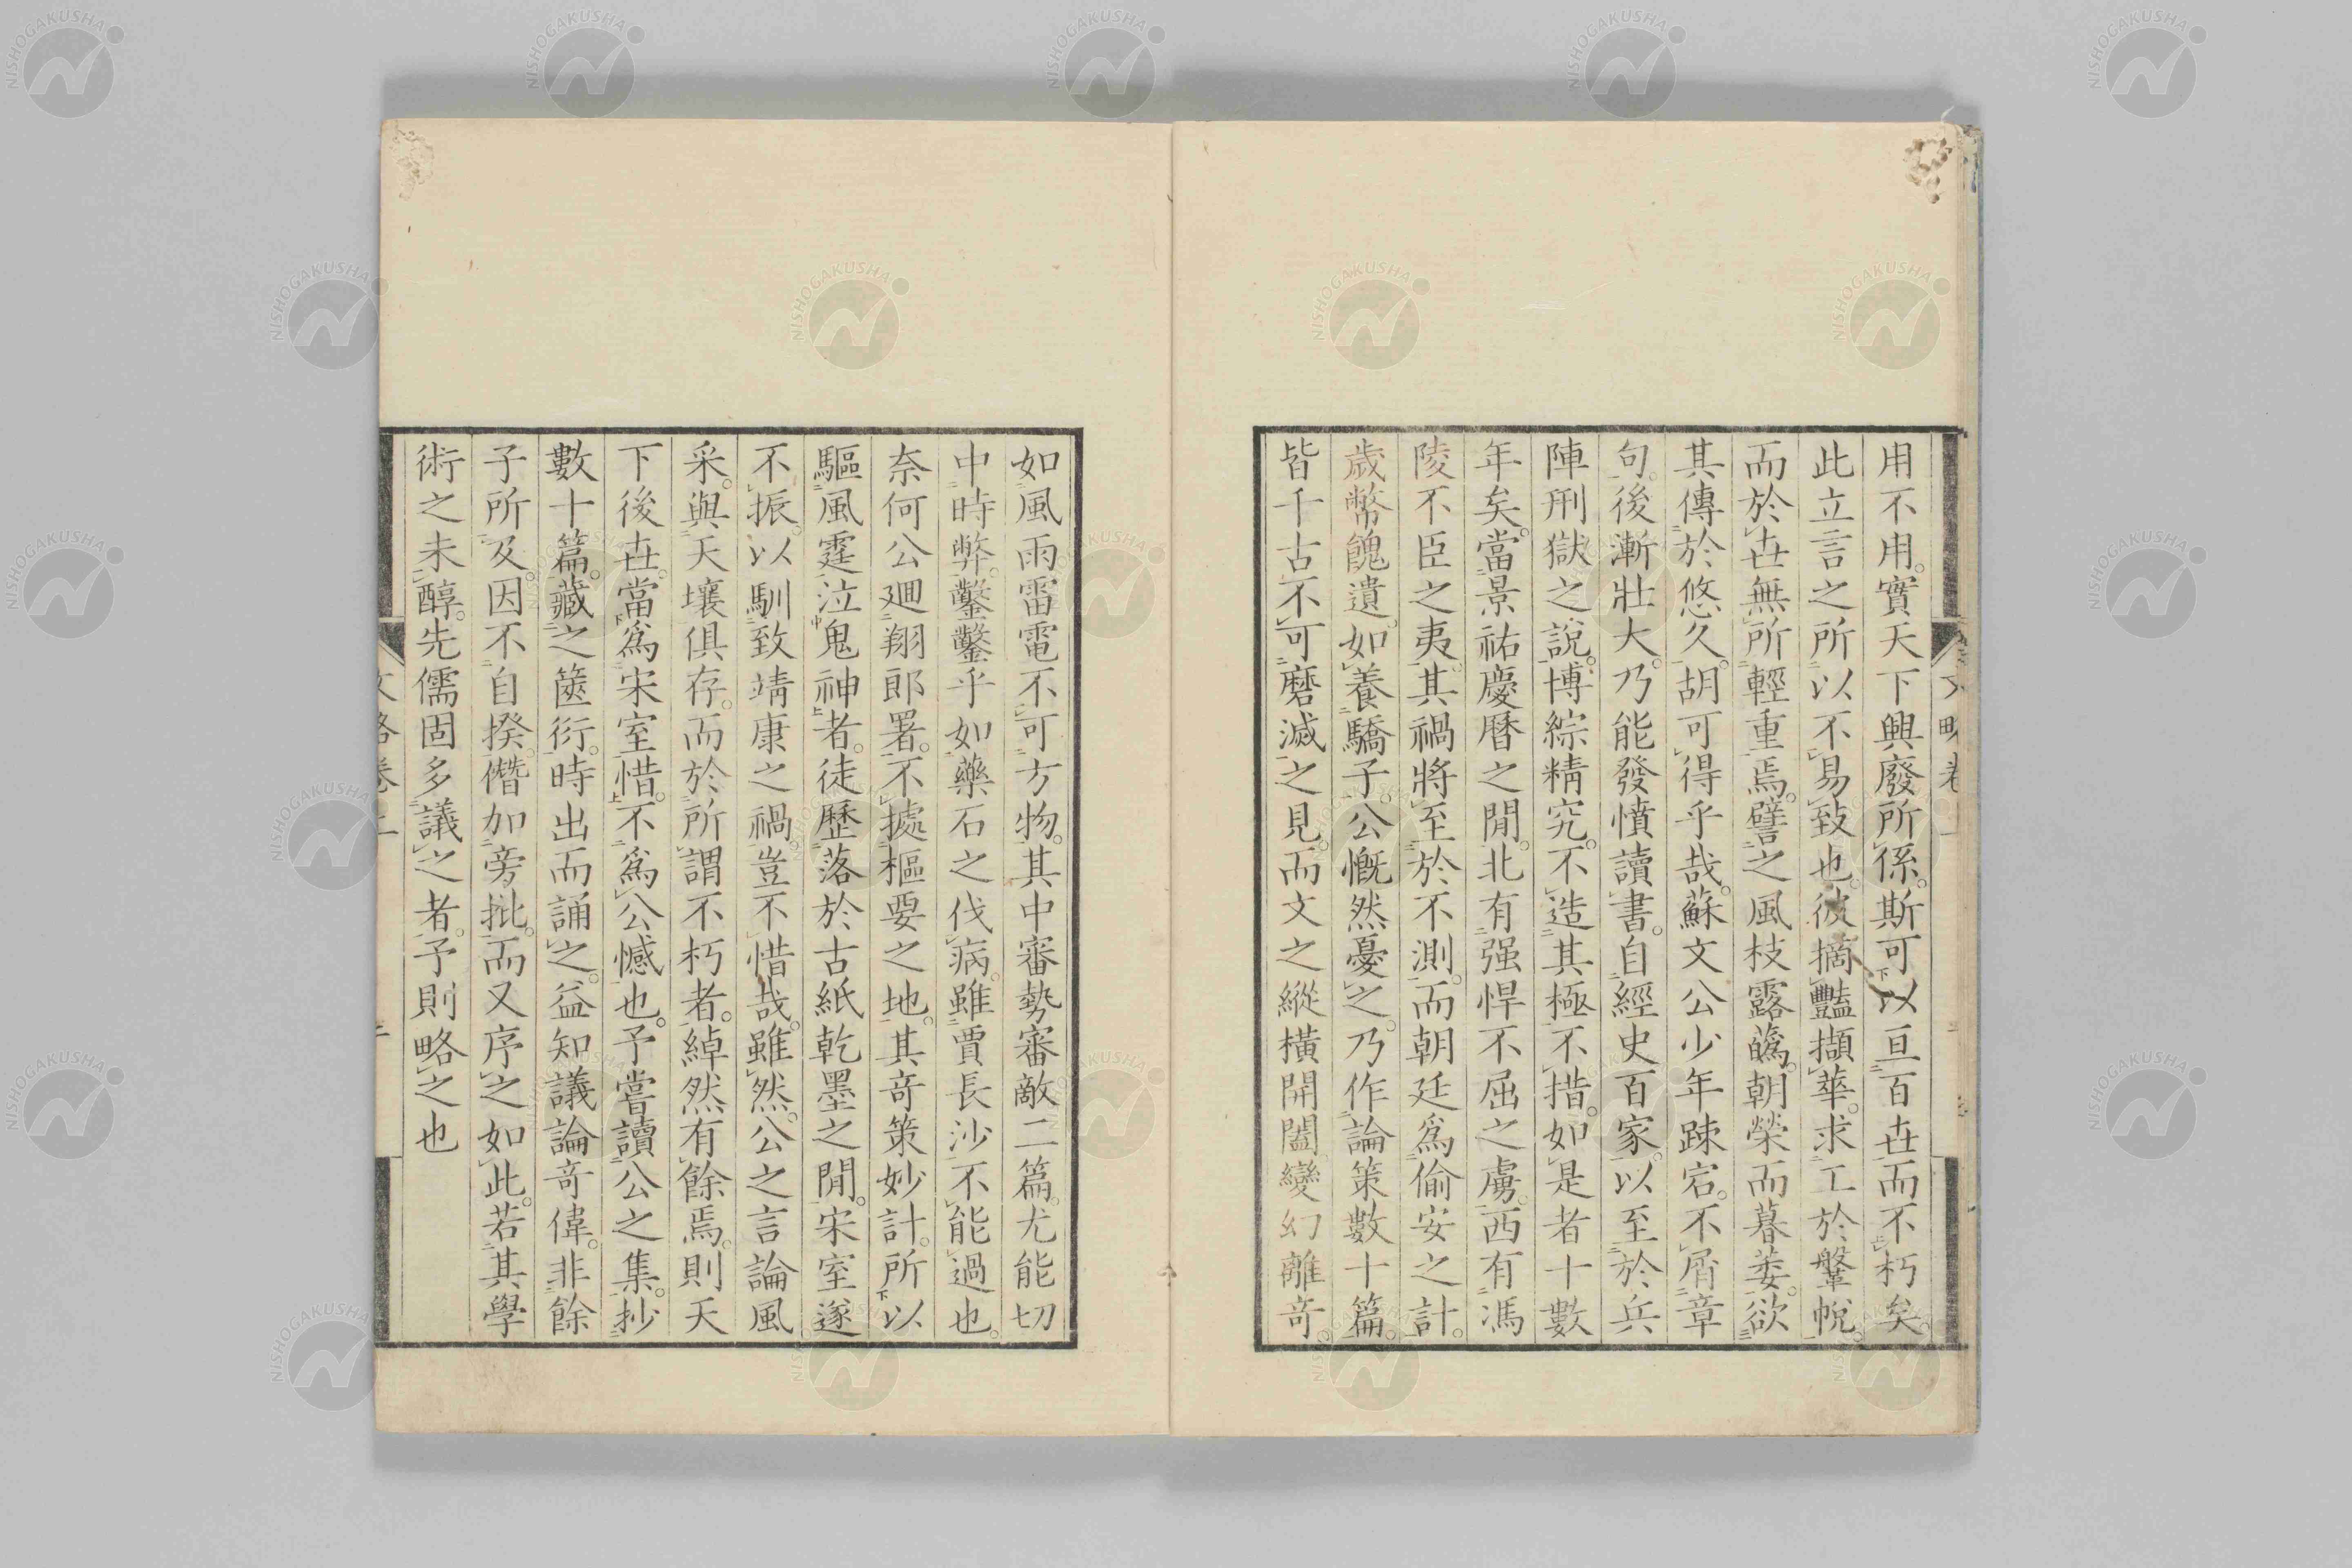 用不用。實天下興廢所係。斯可以亘百世而不朽矣。
此立言之所以不易致也。彼摘豔擷華。求工於鞶帨。
而於世無所輕重焉。譬之風枝露蘤。朝榮而暮萎。欲
其傳於悠久。胡可得乎哉。蘇文公少年踈宕。不屑章
句。後漸壯大。乃能發憤讀書。自經史百家。以至於兵
陣刑獄之說。博綜精究。不造其極不措。如是者十數
年矣。當景祐慶曆之閒。北有强悍不屈之虜。西有馮
陵不臣之夷。其禍將至於不測。而朝廷爲偷安之計。
歲幣餽遺。如養驕子。公慨然憂之。乃作論策數十篇。
皆千古不可磨滅之見。而文之縱橫開闔變幻離奇
如風雨雷電不可方物。其中審勢審敵二篇。尤能切
中時弊。鑿鑿乎如藥石之伐病。雖賈長沙不能過也。
奈何公廻翔郎署。不據樞要之地。其奇策妙計。所以
驅風霆泣鬼神者。徒歷落於古紙乾墨之閒。宋室遂
不振。以馴致靖康之禍。豈不惜哉。雖然。公之言論風
采。與天壤俱存。而於所謂不朽者。綽然有餘焉。則天
下後世。當爲宋室惜。不爲公憾也。予嘗讀公之集。抄
數十篇。藏之篋衍。時出而誦之。益知議論奇偉。非餘
子所及。因不自揆。僭加旁批。而又序之如此。若其學
術之未醇。先儒固多議之者。予則略之也
NISHOGAKUSHA